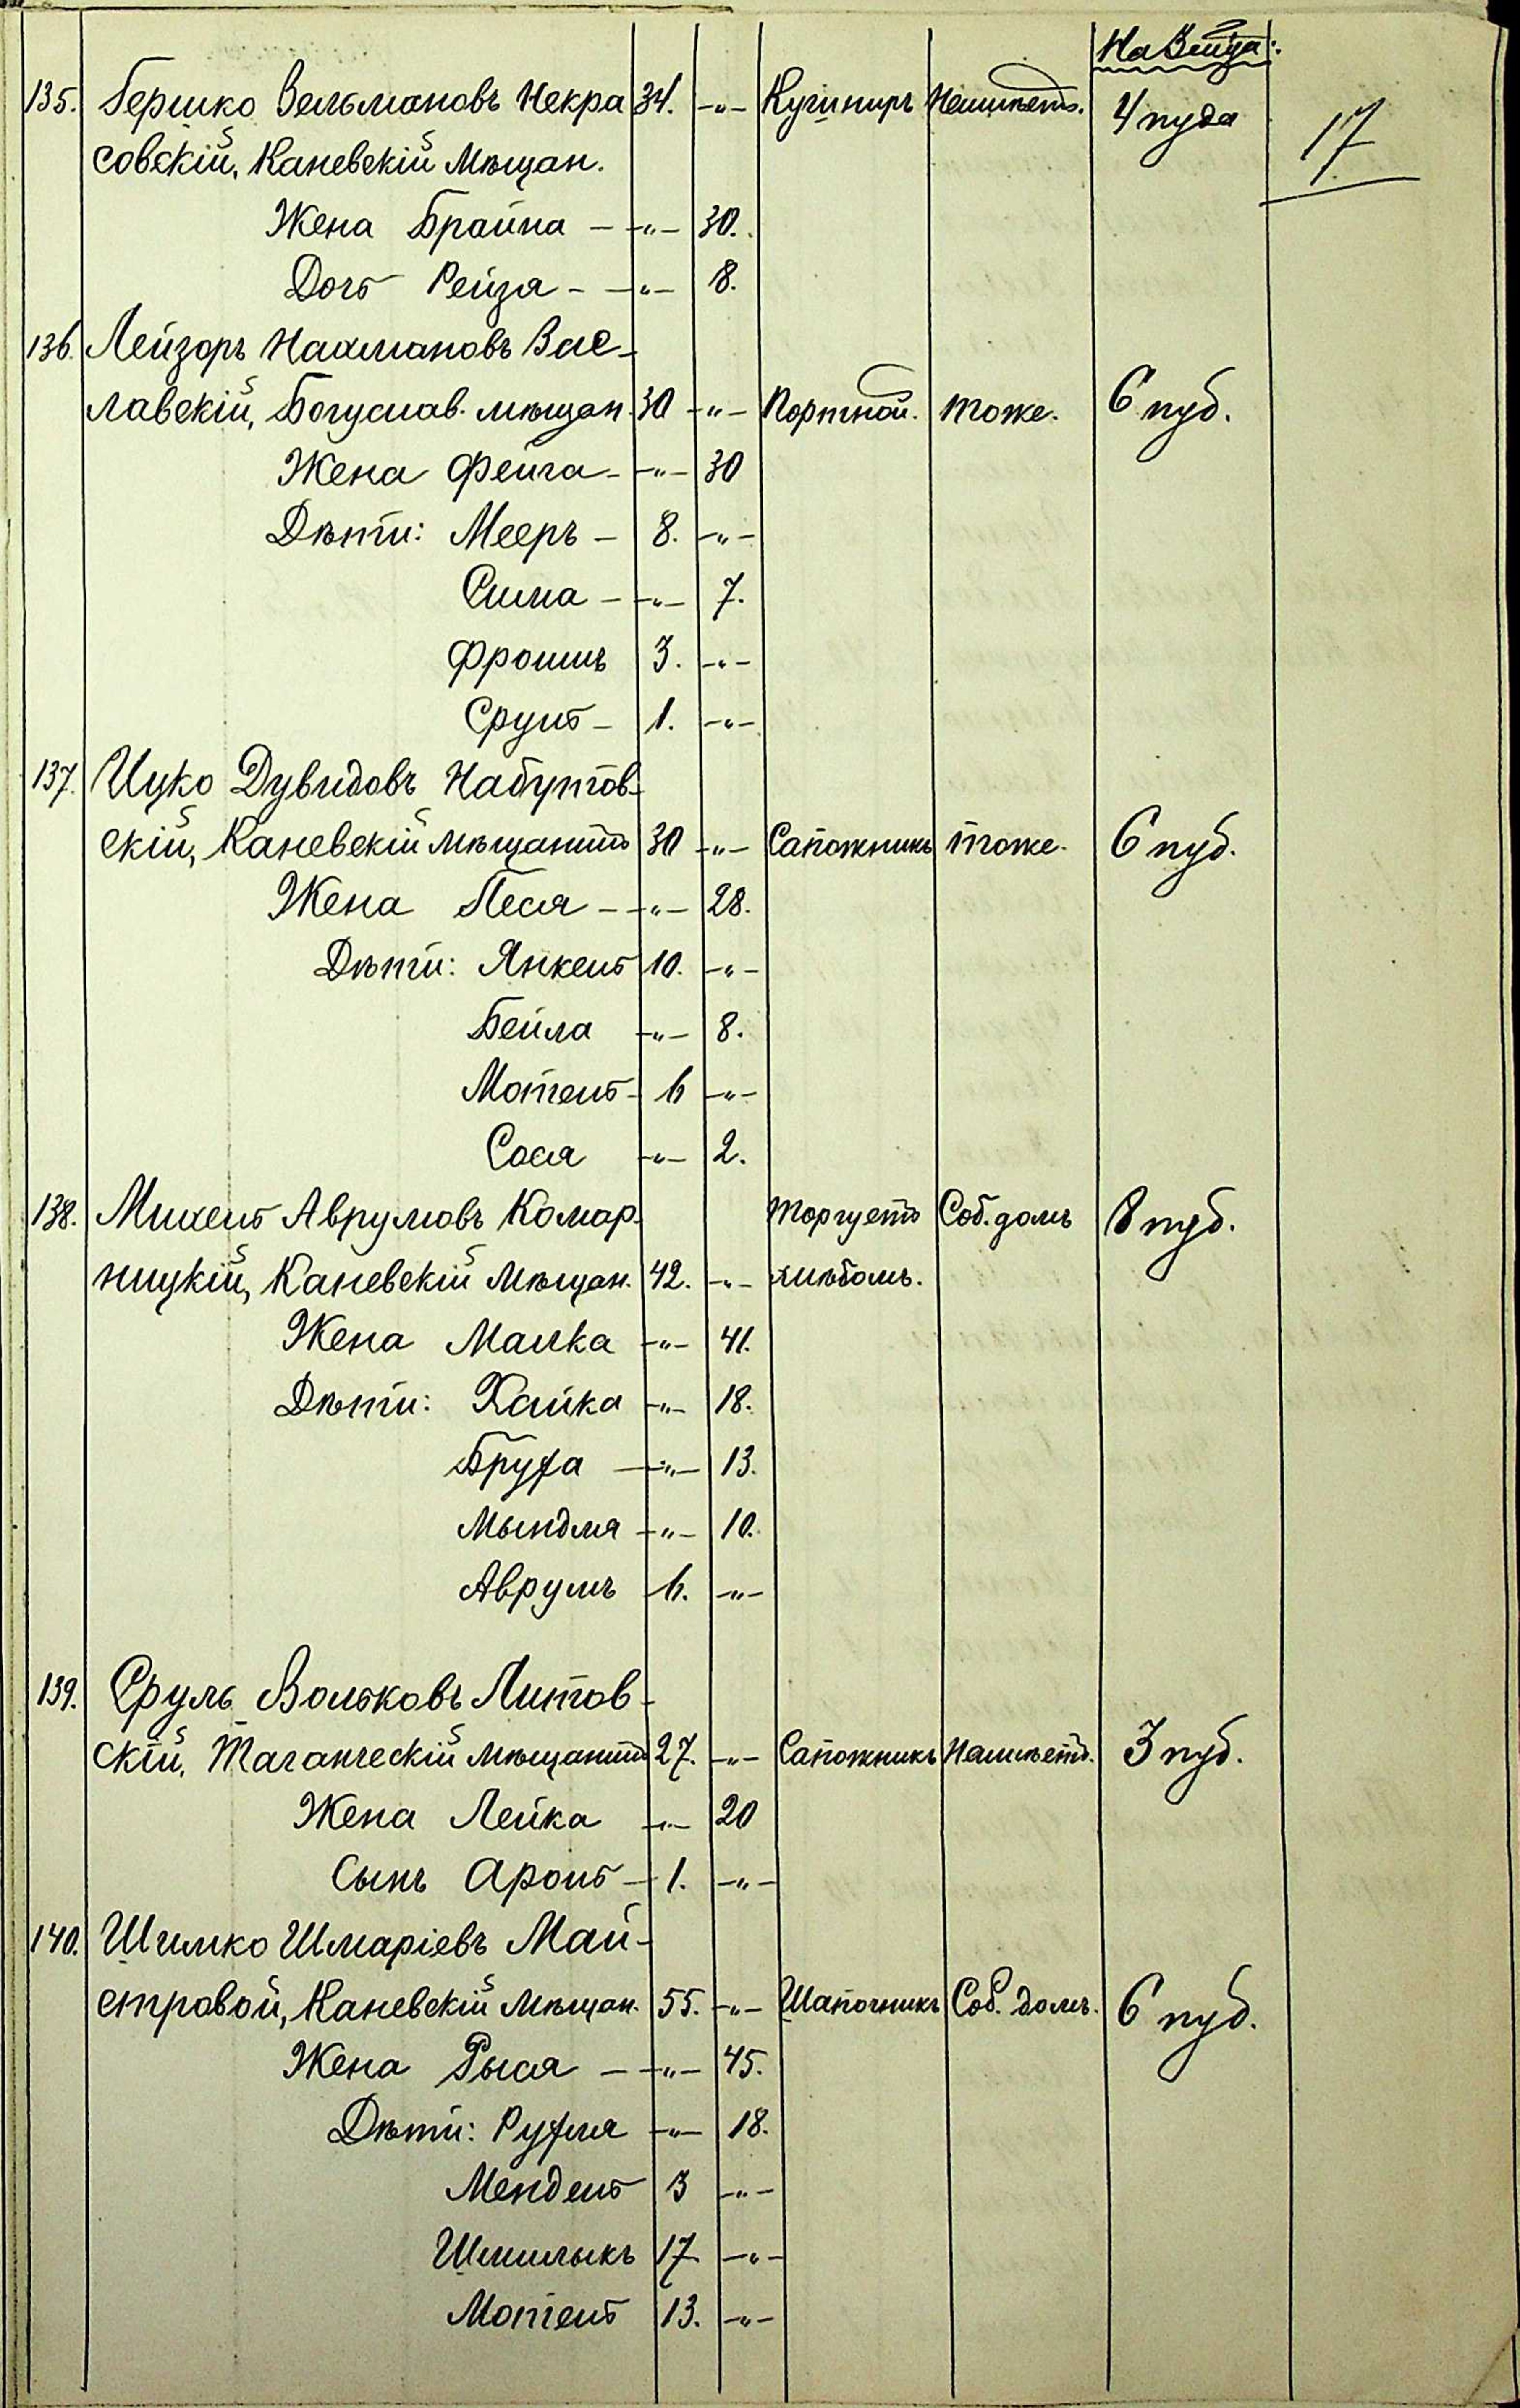 На Зейда:
135. Гершко Зельмановъ Некра 34. -"- Кушниръ Неимѣетъ. 4 пуда 17
совскій, Каневскій Мѣщан.
Жена Брайна - -"- 30.
Дочь Рейзя - -"- 8.
136. Лейзоръ Нахмановъ Зас-
лавскій, Богуслав. мѣщан. 30 -"- Портной. тоже. 6 пуд.
Жена Фейга - -"- 30
Дѣти: Мееръ - 8. -"-
Сима - -"- 7.
Фроимъ 3. -"-
Сруль - 1. -"-
137. Ицко Дувидовъ Набутов-
скій, Каневскій мѣщанинъ 30 -"- Сапожникъ тоже. 6 пуд.
Жена Песя - -"- 28.
Дѣти: Янкель 10. -"-
Бейла -"- 8.
Мотель - 6 -"-
Сося -"- 2.
138. Михель Аврумовъ Комар- Торгуетъ Соб. домъ 8 пуд.
ницкій, Каневскій Мѣщан. 42. -"- хлѣбомъ.
Жена Малка -"- 41.
Дѣти: Хайка -"- 18.
Бруха -"- 13.
Мындля -"- 10.
Аврумъ 6. -"-
139. Сруль Вольковъ Литов-
скій, Таганческій мѣщанинъ 27. -"- Сапожникъ Неимѣетъ. 3 пуд.
Жена Лейка -"- 20
Сынъ Аронъ - 1. -"-
140. Шимко Шмаріевъ Май-
стровой, Каневскій Мѣщан. 55. -"- Шапочникъ Соб. домъ. 6 пуд.
Жена Рыся - -"- 45.
Дѣти: Рухля -"- 18.
Мендель 3 -"-
Шмилыкъ 17 -"-
Мотель 13. -"-